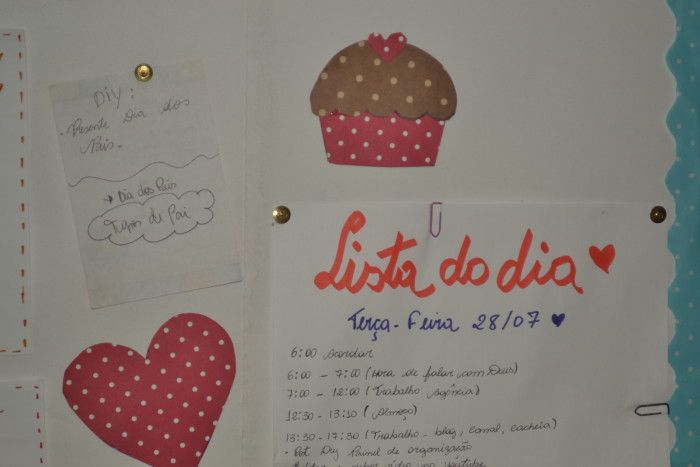 DiY:
- Presente Dia dos
Pais.
→ Dia dos Pais
Tipos de Pai
Lista do dia
Terça-Feira 28/07
6:00 Acordar
6:00 - 7:00 (Hora de falar com Deus)
7:00 - 12:00 (Trabalho agência)
12:30 - 13:10 (Almoço)
13:30 - 17:30 (Trabalho - blog, canal, cacheia)
- Post Diy Painel de organização
vídeo no youtube